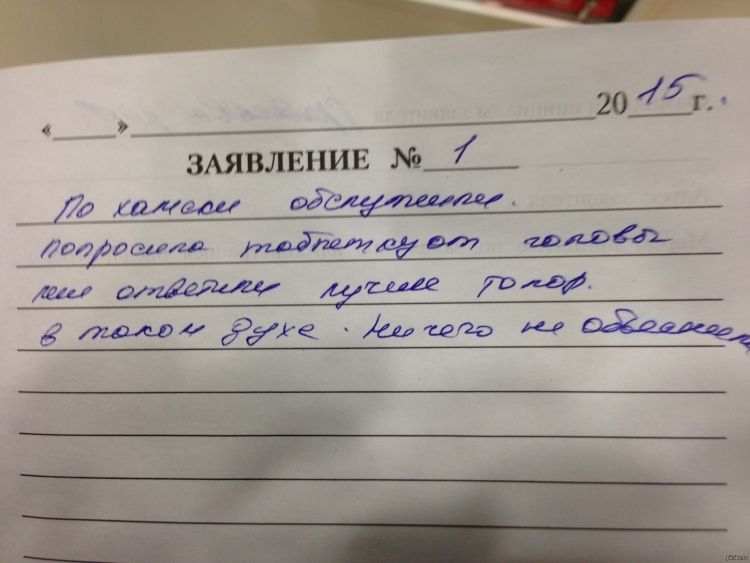 «____»____________________20 15 г.
ЗАЯВЛЕНИЕ № 1
По хамски обслужили.
попросила таблетку от головы
мне ответили лучше топор.
в таком духе. Ничего не объяснили